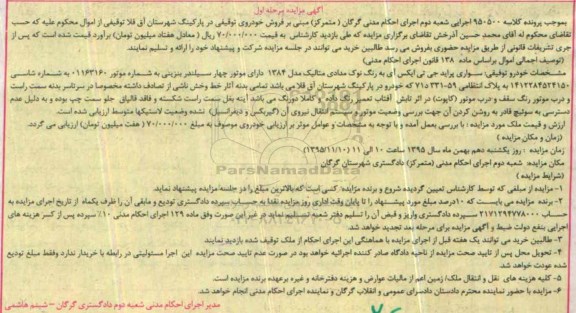 آگهی مزایده مرحله اول
بموجب پرونده کلاسه ۹۵۰۵۰۰ اجرایی شعبه دوم اجرای احکام مدنی گرگان ( متمرکز) مبنی بر فروش خودروی توقیفی در پارکینگ شهرستان آق قلا توقیفی از اموال محکوم علیه که حسب
تقاضای محکوم له آقای محمد حسین آذرخش تقاضای برگزاری مزایده که طی بازدید کارشناسی به قیمت ۷۰/۰۰۰/۰۰۰ ریال ( معادل هفتاد میلیون تومان) برآورد قیمت شده است که پس از
جری تشریفات قانونی از طریق مزایده حضوری بفروش می رسد طالبین خرید می توانند در جلسه مزایده شرکت و پیشنهاد خود را ارائه و تسلیم نمایند.
(توصیف اجمالی اموال براساس ماده ۱۳۸ قانون اجرای احکام مدنی)
مشخصات خودرو توقیفی: سواری پراید جی تی ایکس آی به رنگ نوک مدادی متالیک مدل ۱۳۸۴ دارای موتور چهار سیلندر بنزینی به شماره موتور ۰۱۱۶۳۱۶۰ به شماره شاسی
۱۴۱۲۲۸۴۵۲۴۱۵۰ به پلاک انتظامی ۵۹-۳۳۱د۷۱ که خودرو در پارکینگ شهرستان آق قلا می باشد تمامی بدنه آثار خط وخش ناشی از تصادف داشته مخصوصا در سرتاسر بدنه سمت راست
و درب موتور رنگ سقف و درب موتور (کاپوت) در اثر تابش آفتاب تغییر رنگ داده و کاملا دورنگ می باشد آینه بغل سمت راست شکسته و فاقد قالپاق جلو سمت چپ بوده و به دلیل عدم
دسترسی به سوئیچ قادر به روشن کردن آن جهت بررسی وضعیت موتور و سیستم انتقال نیروی آن (گیربکس و دیفرانسیل) نشده وضعیت لاستیکها متوسط ارزیابی شده است.
ارزش و قیمت ملک مورد مزایده : با بررسی بعمل آمده و با توجه به مشخصات و عوامل موثر بر ارزیابی خودروی موصوف به مبلغ ۷۰/۰۰۰/۰۰۰ ( هفت میلیون تومان) ارزیابی می گردد.
(زمان و مکان مزایده )
زمان مزایده : روز یکشنبه دهم بهمن ماه سال ۱۳۹۵ ساعت ۱۰ الی ۱۱ (۱۳۹۵/۱۱/۱۰)
مکان مزایده: شعبه دوم اجرای احکام مدنی (متمرکز) دادگستری شهرستان گرگان
(شرایط مزایده )
۱- مزایده از مبلغی که توسط کارشناس تعیین گردیده شروع و برنده مزایده: کسی است که بالاترین مبلغ را در جلسه مزایده پیشنهاد نماید.
۲- برنده مزایده می بایست که ۱۰درصد مبلغ مورد پیشنهاد را تا پایان وقت اداری روز مزایده نقدا به حساب سپرده دادگستری تودیع و مابقی آن را ظرف یکماه از تاریخ اجرای مزایده به
حساب ۲۱۷۱۲۹۴۷۷۸۰۰۰ سپرده دادگستری واریز و قبض آن را تسلیم دفتر شعبه تسلیم نماید در غیر این صورت وفق ماده ۱۲۹ اجرای احکام مدنی ۱۰٪ سپرده پس از کسر هزینه های
اجرایی بنفع دولت ضبط و آگهی مزایده برای مرحله بعد تجدید خواهد شد.
۳- طالبین خرید می توانند یک هفته قبل از اجرای مزایده با هماهنگی این اجرای احکام از ملک توقیف شده بازدید نمایند
۴- تحویل محل پس از تایید صحت مزایده از ناحیه دادگاه صادر کننده اجرائیه خواهد بود در صورت عدم تایید صحت مزایده این اجرا مسئولیتی در رابطه با خریدار ندارد وفقط مبلغ تودیع
شده عودت خواهد شد.
۵- کلیه هزینه های نقل و انتقال ملک/ زمین اعم از مالیات عوارض و هزینه دفترخانه و غیره برعهده برنده مزایده است.
۶- مزایده با حضور نماینده محترم دادستان دادسرای عمومی و انقلاب گرگان و نماینده اجرای احکام مدنی انجام خواهد شد.
مدیر اجرای احکام مدنی شعبه دوم دادگستری گرگان – شبنم هاشمی
ParsNamadData